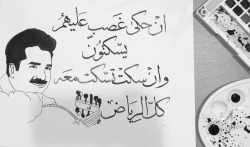 ان حكى غصب عليهم
يسكتون
وان سكت تسكت معه
كل الرياض